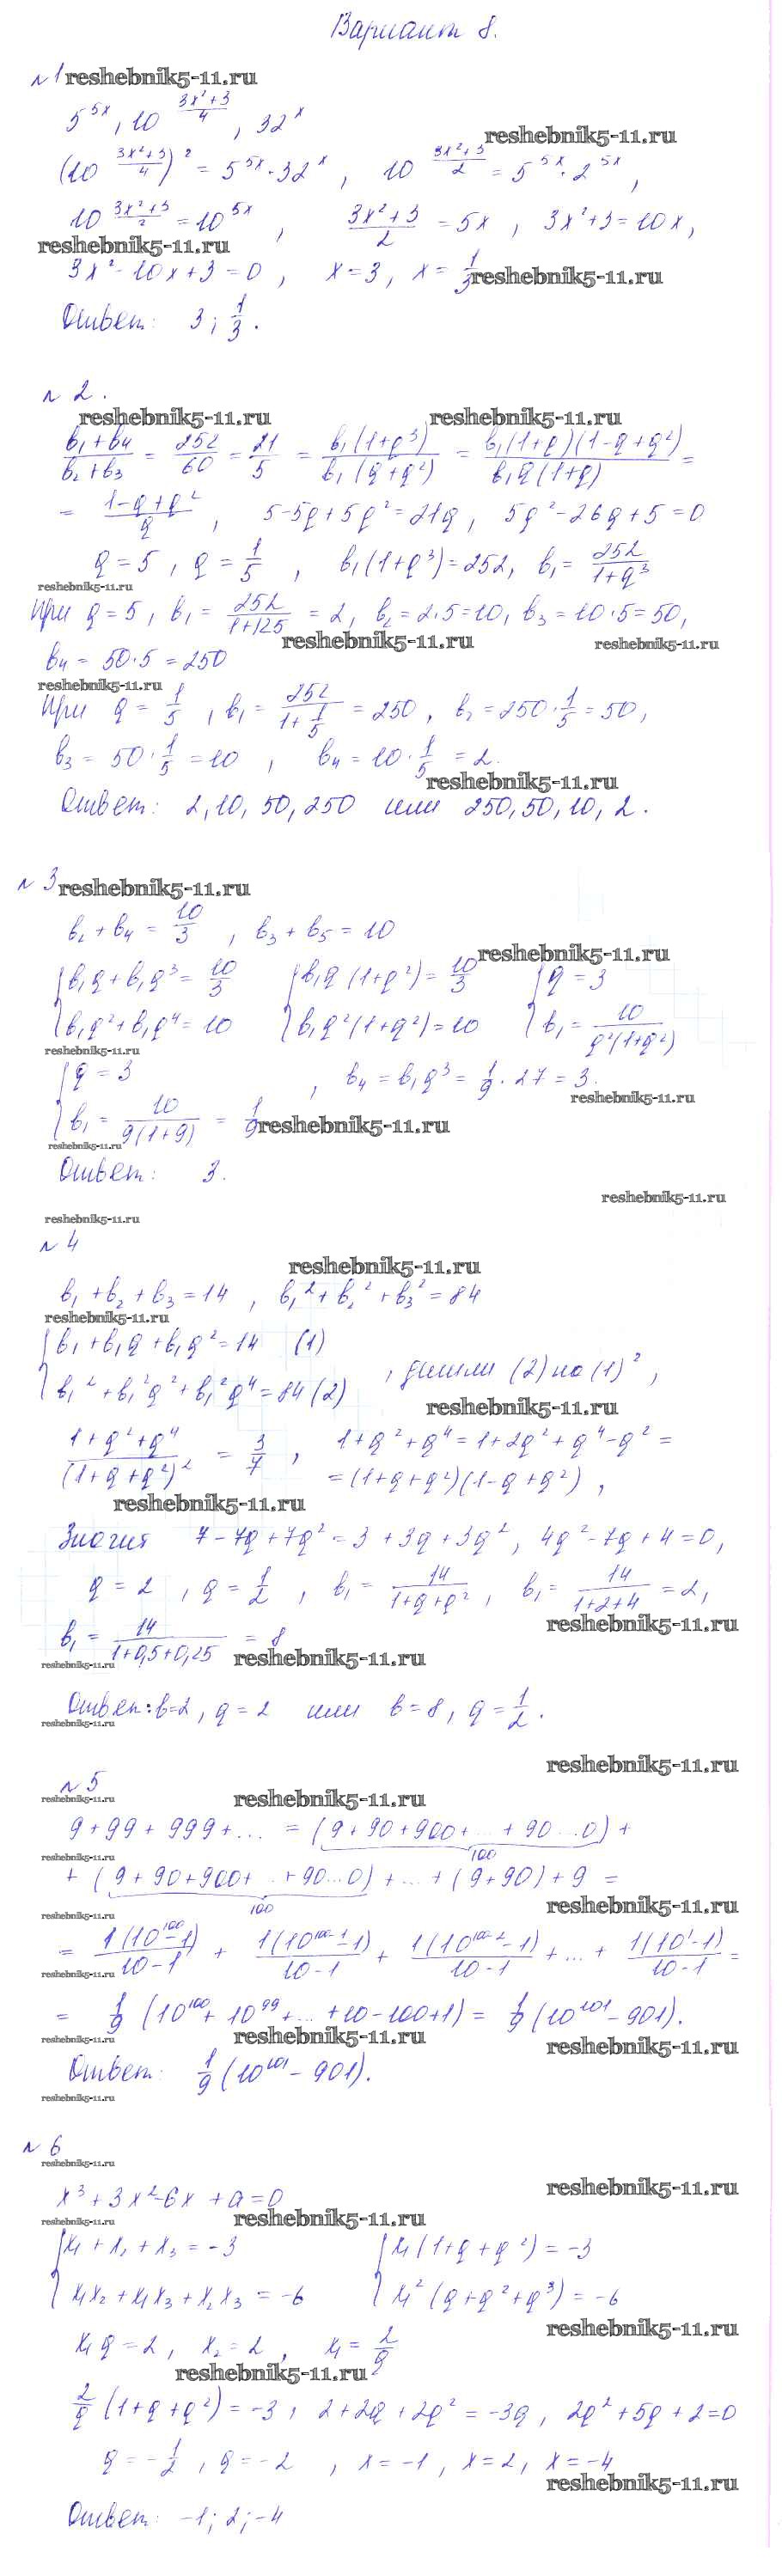 Вариант 8.
№1 reshebnik5-11.ru
5^{5x}, 10^{\frac{3x²+3}{4}}, 32^x
reshebnik5-11.ru
(10^{\frac{3x²+3}{4}})² = 5^{5x}·32^x, 10^{\frac{3x²+3}{2}} = 5^{5x}·2^{5x},
10^{\frac{3x²+3}{2}} = 10^{5x}, \frac{3x²+3}{2} = 5x, 3x²+3=10x,
reshebnik5-11.ru
3x²-10x+3=0, x=3, x=\frac{1}{3} reshebnik5-11.ru
Ответ: 3; \frac{1}{3}.
№ 2.
reshebnik5-11.ru reshebnik5-11.ru
\frac{b₁+b₄}{b₂+b₃} = \frac{252}{60} = \frac{21}{5} = \frac{b₁(1+q³)}{b₁(q+q²)} = \frac{b₁(1+q)(1-q+q²)}{b₁q(1+q)} =
= \frac{1-q+q²}{q}, 5-5q+5q²=21q, 5q²-26q+5=0
q=5, q=\frac{1}{5}, b₁(1+q³)=252, b₁=\frac{252}{1+q³}
reshebnik5-11.ru
При q=5, b₁=\frac{252}{1+125}=2, b₂=2·5=10, b₃=10·5=50,
reshebnik5-11.ru reshebnik5-11.ru
b₄=50·5=250
reshebnik5-11.ru
При q=\frac{1}{5}, b₁=\frac{252}{1+\frac{1}{5}}=250, b₂=250·\frac{1}{5}=50,
b₃=50·\frac{1}{5}=10, b₄=10·\frac{1}{5}=2.
reshebnik5-11.ru
Ответ: 2,10,50,250 или 250,50,10,2.
№ 3 reshebnik5-11.ru
b₂+b₄=\frac{10}{3}, b₃+b₅=10
reshebnik5-11.ru
{b₁q+b₁q³=\frac{10}{3} {b₁q(1+q²)=\frac{10}{3} {q=3
{b₁q²+b₁q⁴=10 {b₁q²(1+q²)=10 {b₁=\frac{10}{q²(1+q²)}
reshebnik5-11.ru
{q=3 , b₄=b₁q³=\frac{1}{9}·27=3.
reshebnik5-11.ru
{b₁=\frac{10}{9(1+9)}=\frac{1}{9} reshebnik5-11.ru
reshebnik5-11.ru
Ответ: 3.
reshebnik5-11.ru
reshebnik5-11.ru
№ 4
reshebnik5-11.ru
b₁+b₂+b₃=14, b₁²+b₂²+b₃²=84
reshebnik5-11.ru
{b₁+b₁q+b₁q²=14 (1)
{b₁²+b₁²q²+b₁²q⁴=84 (2) , делим (2) на (1)²,
reshebnik5-11.ru
\frac{1+q²+q⁴}{(1+q+q²)²}=\frac{3}{7}, 1+q²+q⁴=1+2q²+q⁴-q²=
=(1+q+q²)(1-q+q²),
reshebnik5-11.ru
Значит 7-7q+7q²=3+3q+3q², 4q²-7q+4=0,
q=2, q=\frac{1}{2}, b₁=\frac{14}{1+q+q²}, b₁=\frac{14}{1+2+4}=2,
reshebnik5-11.ru
b₁=\frac{14}{1+0,5+0,25}=8
reshebnik5-11.ru reshebnik5-11.ru
Ответ: b=2, q=2 или b=8, q=\frac{1}{2}.
reshebnik5-11.ru
reshebnik5-11.ru
№5
reshebnik5-11.ru reshebnik5-11.ru
9+99+999+... = (9+90+900+...+90...0)+
reshebnik5-11.ru 100
+(9+90+900+..+90...0)+...+(9+90)+9=
reshebnik5-11.ru 100 reshebnik5-11.ru
=\frac{1(10^{100}-1)}{10-1}+\frac{1(10^{100-1}-1)}{10-1}+\frac{1(10^{100-2}-1)}{10-1}+...+\frac{1(10^1-1)}{10-1}=
reshebnik5-11.ru
=\frac{1}{9}(10^{100}+10^{99}+...+10-100+1)=\frac{1}{9}(10^{101}-901).
reshebnik5-11.ru reshebnik5-11.ru reshebnik5-11.ru
Ответ: \frac{1}{9}(10^{101}-901).
reshebnik5-11.ru
№ 6
reshebnik5-11.ru
x³+3x²-6x+a=0
reshebnik5-11.ru
reshebnik5-11.ru reshebnik5-11.ru
{x₁+x₂+x₃=-3 {x₁(1+q+q²)=-3
{x₁x₂+x₁x₃+x₂x₃=-6 {x₁²(q+q²+q³)=-6
reshebnik5-11.ru
x₁q=2, x₂=2, x₁=\frac{2}{q}
reshebnik5-11.ru
\frac{2}{q}(1+q+q²)=-3, 2+2q+2q²=-3q, 2q²+5q+2=0
q=-\frac{1}{2}, q=-2, x=-1, x=2, x=-4
reshebnik5-11.ru
Ответ: -1; 2; -4